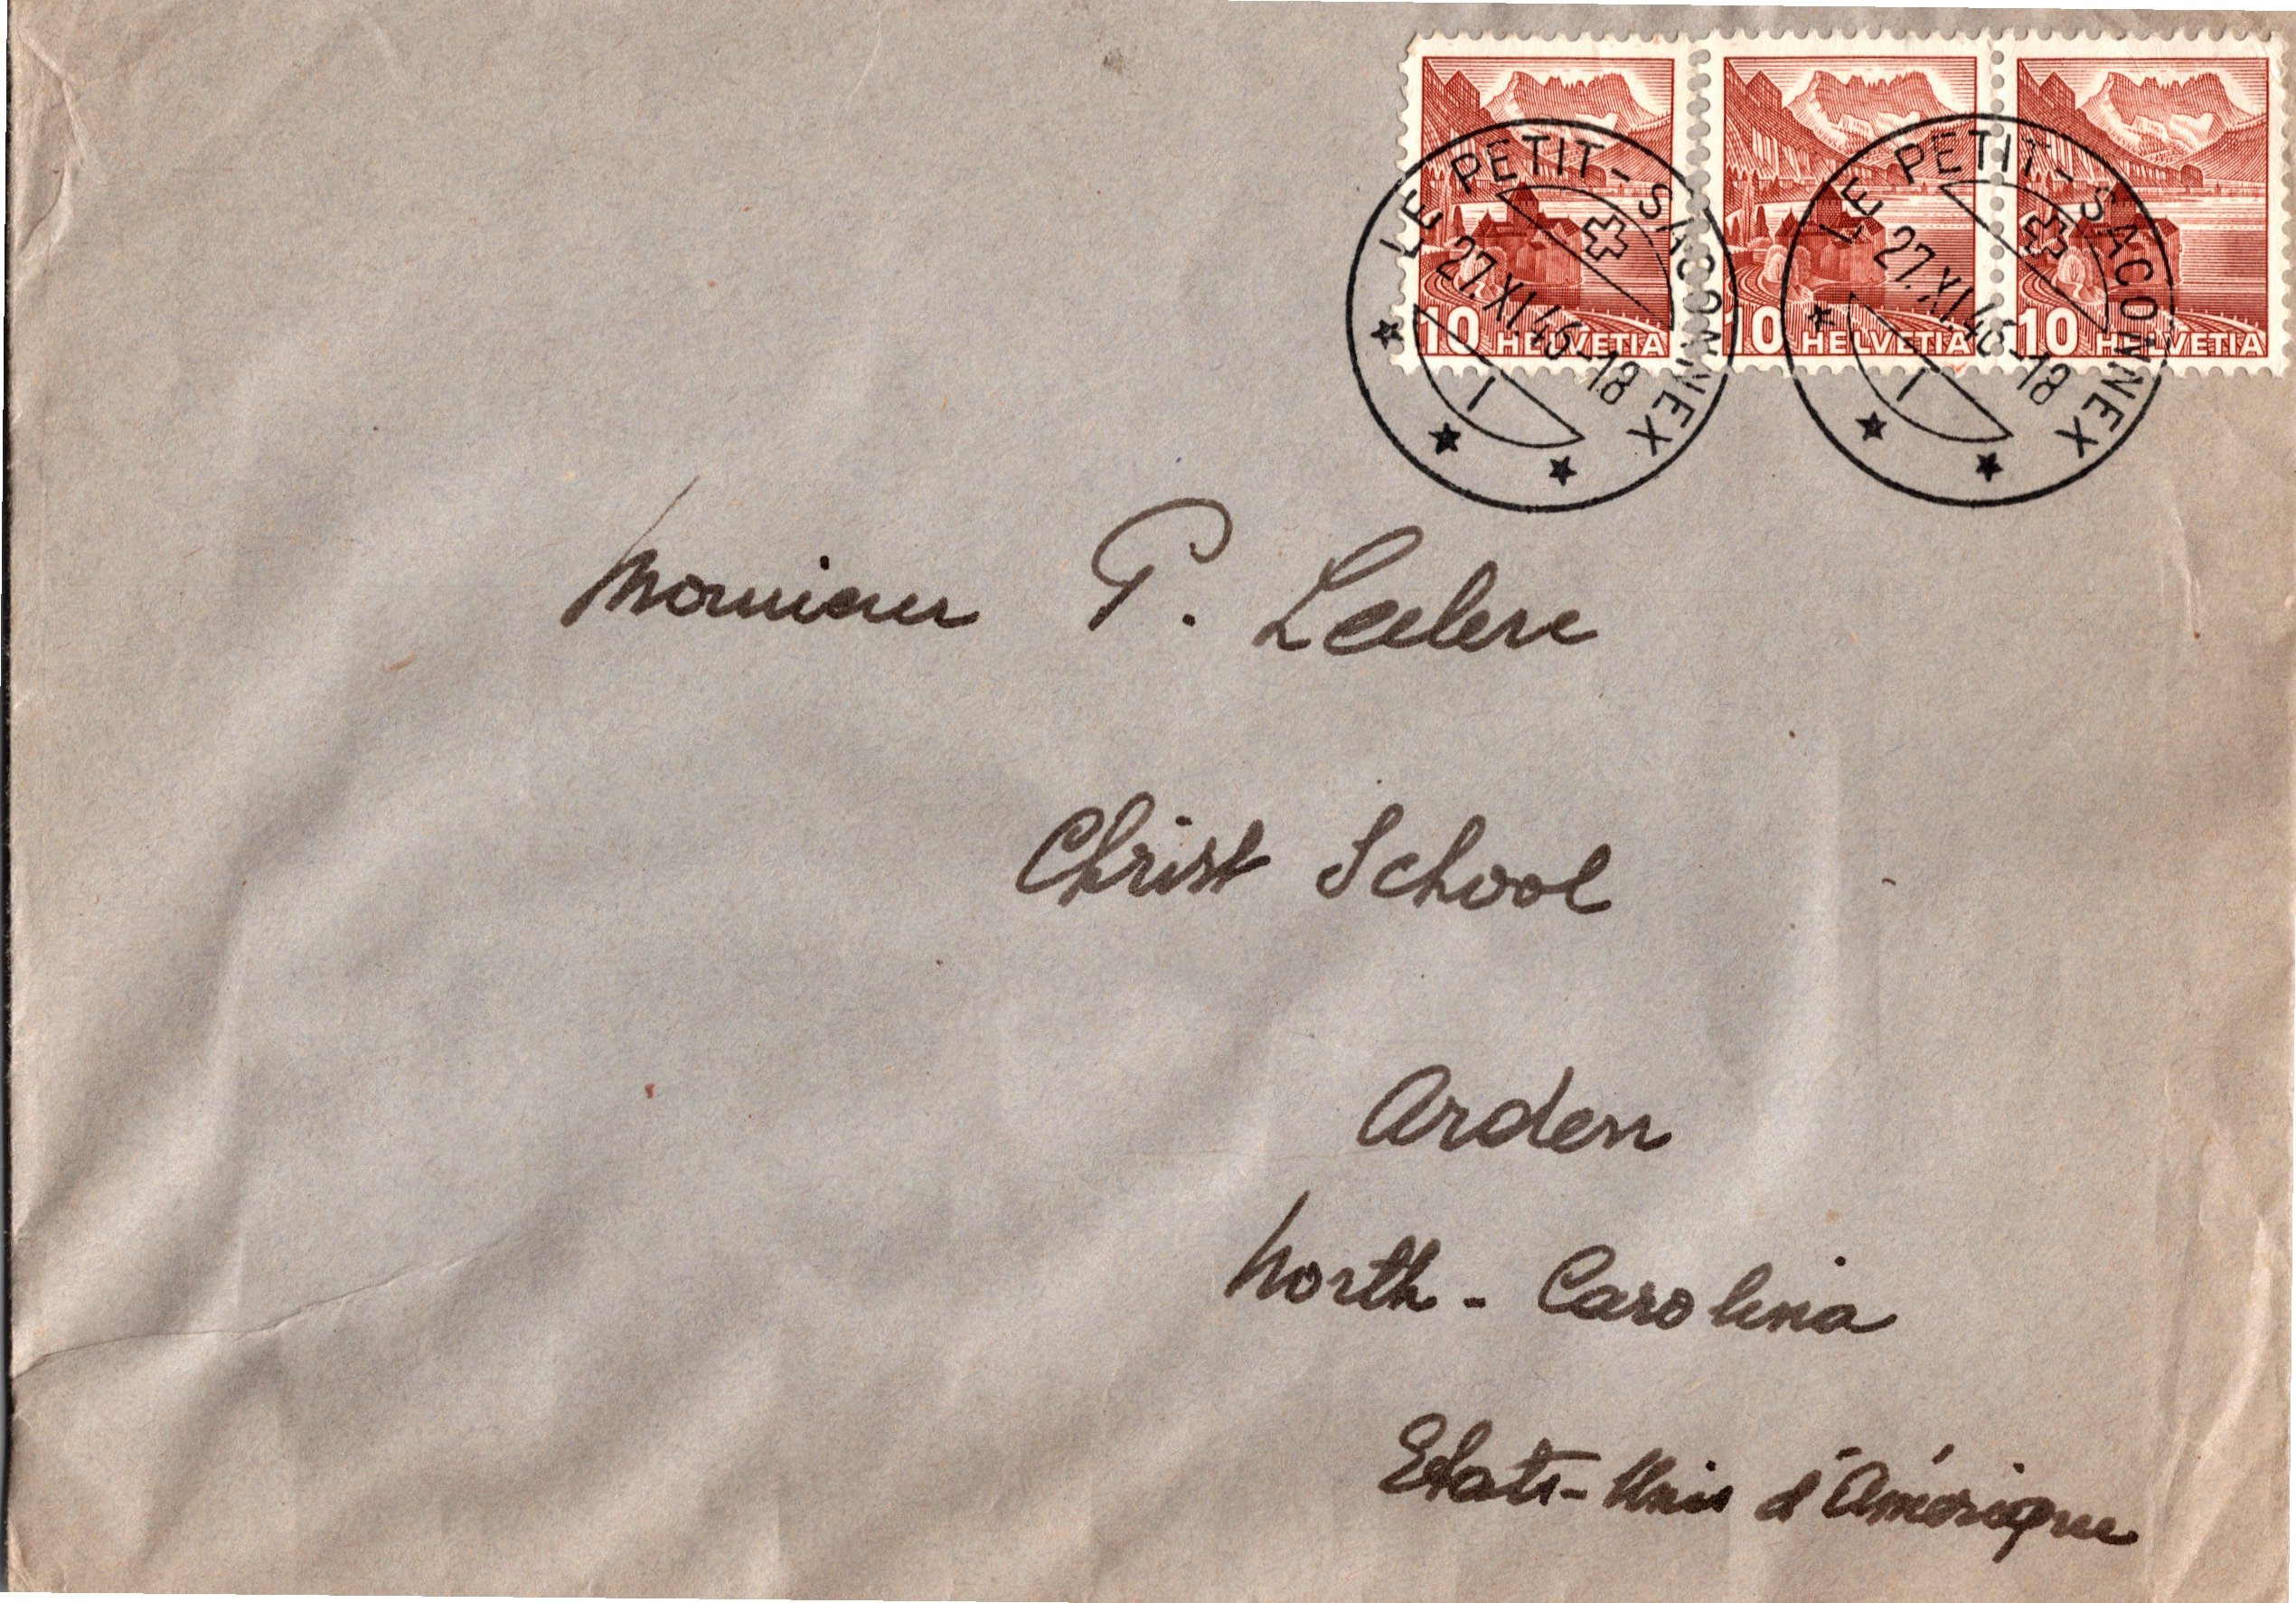 10 HELVETIA 10 HELVETIA 10 HELVETIA
LE PETIT-SACONNEX
27.XI.46-18
1
LE PETIT-SACONNEX
27.XI.46-18
1
Monsieur P. Leclerc
Christ School
Arden
North - Carolina
Etats-Unis d'Amérique